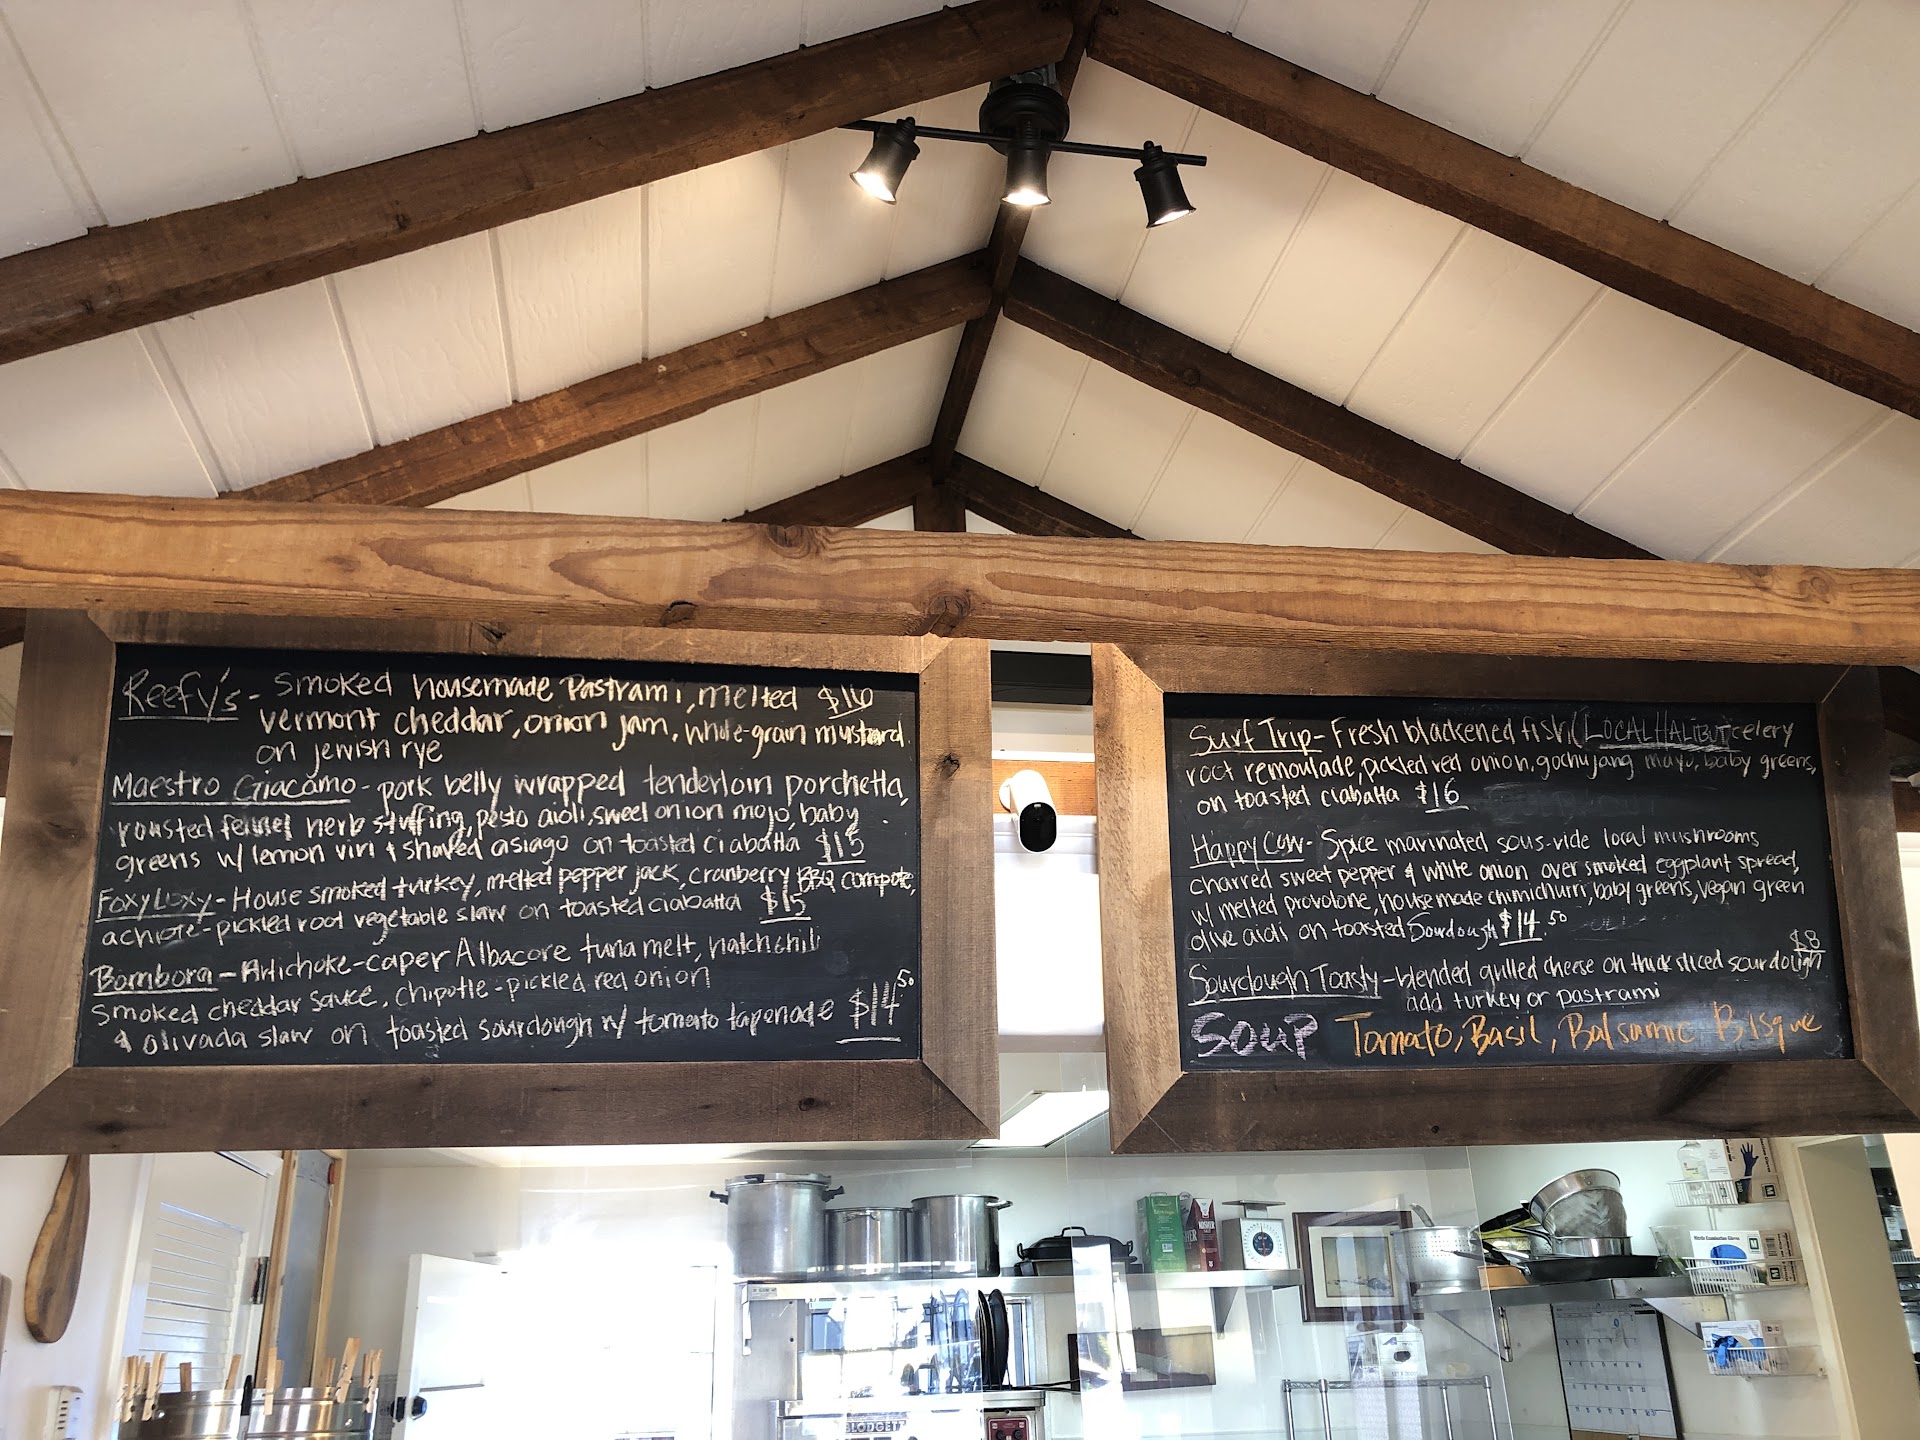 Reefy's - Smoked housemade Pastrami, melted $16
vermont cheddar, onion jam, whole-grain mustard
on jewish rye
Maestro Giacamo - pork belly wrapped tenderloin porchetta,
roasted fennel herb stuffing, pesto aioli, sweet onion mojo, baby
greens w/ lemon vin & shaved asiago on toasted ciabatta $15
Foxy Loxy - House smoked turkey, melted pepper jack, cranberry BBQ compote,
achiote-pickled root vegetable slaw on toasted ciabatta $15
Bombora - Artichoke-caper Albacore tuna melt, hatch chili
smoked cheddar sauce, chipotle-pickled red onion
& olivada slaw on toasted sourdough w/ tomato tapenade $14.50
Surf Trip - Fresh blackened fish (LOCAL HALIBUT) celery
root remoulade, pickled red onion, gochujang mayo, baby greens,
on toasted ciabatta $16
Happy Cow - Spice marinated sous-vide local mushrooms
charred sweet pepper & white onion over smoked eggplant spread,
w/ melted provolone, house made chimichurri, baby greens, vegan green
olive aioli on toasted Sourdough $14.50
$8
Sourdough Toasty - blended grilled cheese on thick sliced sourdough
add turkey or pastrami
SOUP Tomato, Basil, Balsamic Bisque
KOSHER
BLODGETT